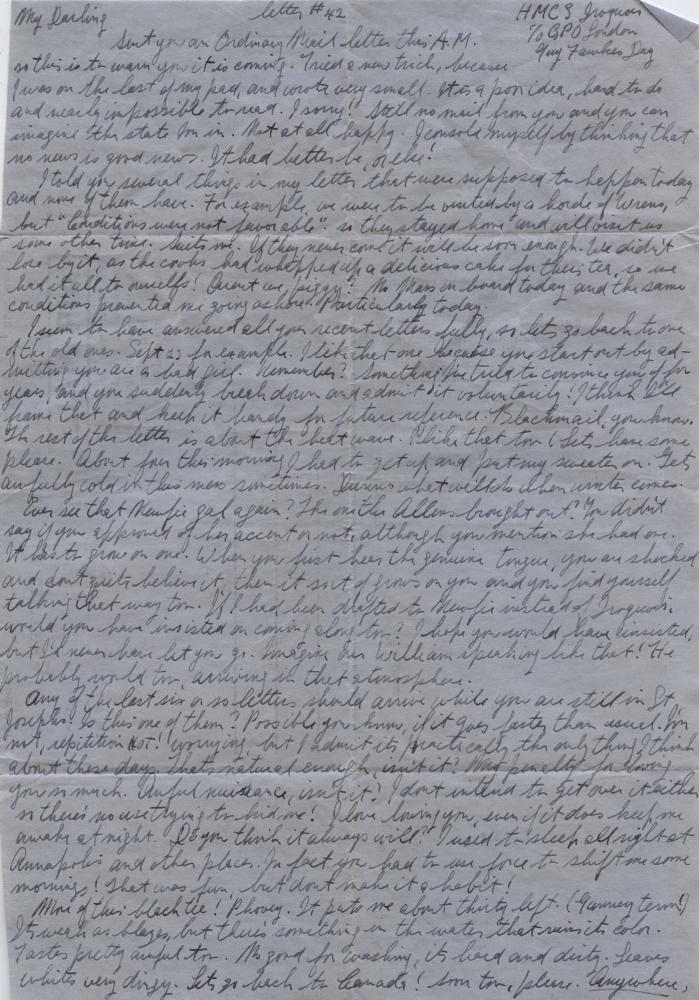 My Darling letter #42 HMCS Iroquois
℅ GPO London
Sent you an Ordinary Mail letter this A.M. Guy Fawkes Day
so this is to warn you it is coming. Tried a new trick, because
I was on the last of my pad, and wrote very small. It is a poor idea, hard to do
and nearly impossible to read. I sorry! Still no mail from you and you can
imagine the state I'm in. Not at all happy. I console myself by thinking that
no news is good news. It had better be, or else!
I told you several things in my letter that were supposed to happen today
and none of them have. For example, we were to be visited by a horde of Wrens,
but "Conditions were not favorable" so they stayed home and will visit us
some other time. Suits me. If they never come it will be soon enough. We didn't
lose by it, as the cooks had whopped up a delicious cake for their tea, so we
had it all to ourselfs! Arent we piggy? No Mass on board today and the same
conditions prevented me going ashore. Particularly today.
I seem to have answered all your recent letters fully, so lets go back to one
of the old ones. Sept 23 for example. I like that one because you start out by ad-
mitting you are a bad girl. Remember? Something I've tried to convince you of for
years, and you suddenly break down and admit it voluntarily! I think I'll
frame that and keep it handy for future reference. Blackmail, you know.
The rest of the letter is about the heat wave. I like that too! Lets have some
please. About four this morning I had to get up and put my sweater on. Gets
awfully cold in this mess sometimes. Dunno what will do when winter comes.
Ever see that Newfie gal again? The one the Allens brought out? You didn't
say if you approved of her accent or not, although you mention she had one.
It has to grow on one. When you first hear the genuine tongue, you are shocked
and dont quite believe it, then it sort of grows on you and you find yourself
talking that way too. If I had been drafted to Newfie instead of Iroquois,
would you have insisted on coming along too? I hope you would have insisted,
but I'd never have let you go. Imagine our William speaking like that! He
probably would too, arriving in that atmosphere.
Any of the last six or so letters should arrive while you are still in St
Josephs. Is this one of them? Possible you know, if it goes faster than usual. I'm
not, repitition Not! worrying, but I admit its practically the only thing I think
about these days. Thats natural enough, isn't it? My penalty for loving
you so much. Awful nuisance, isn't it? I dont intend to get over it either
so there's no use trying to kid me! I love loving you, even if it does keep me
awake at night. Do you think it always will? I used to sleep all right at
Annapolis and other places. In fact you had to use force to shift me some
mornings! That was fun, but dont make it a habit!
More of this black tea! Phooey. It puts me about thirty left. (Gunnery term!)
Its weak as blazes, but there's something in the water that ruins its color.
Tastes pretty awful too. No good for washing, its hard and dirty. Leaves
whites very dingy. Lets go back to Canada! soon too, please. Anywhere,